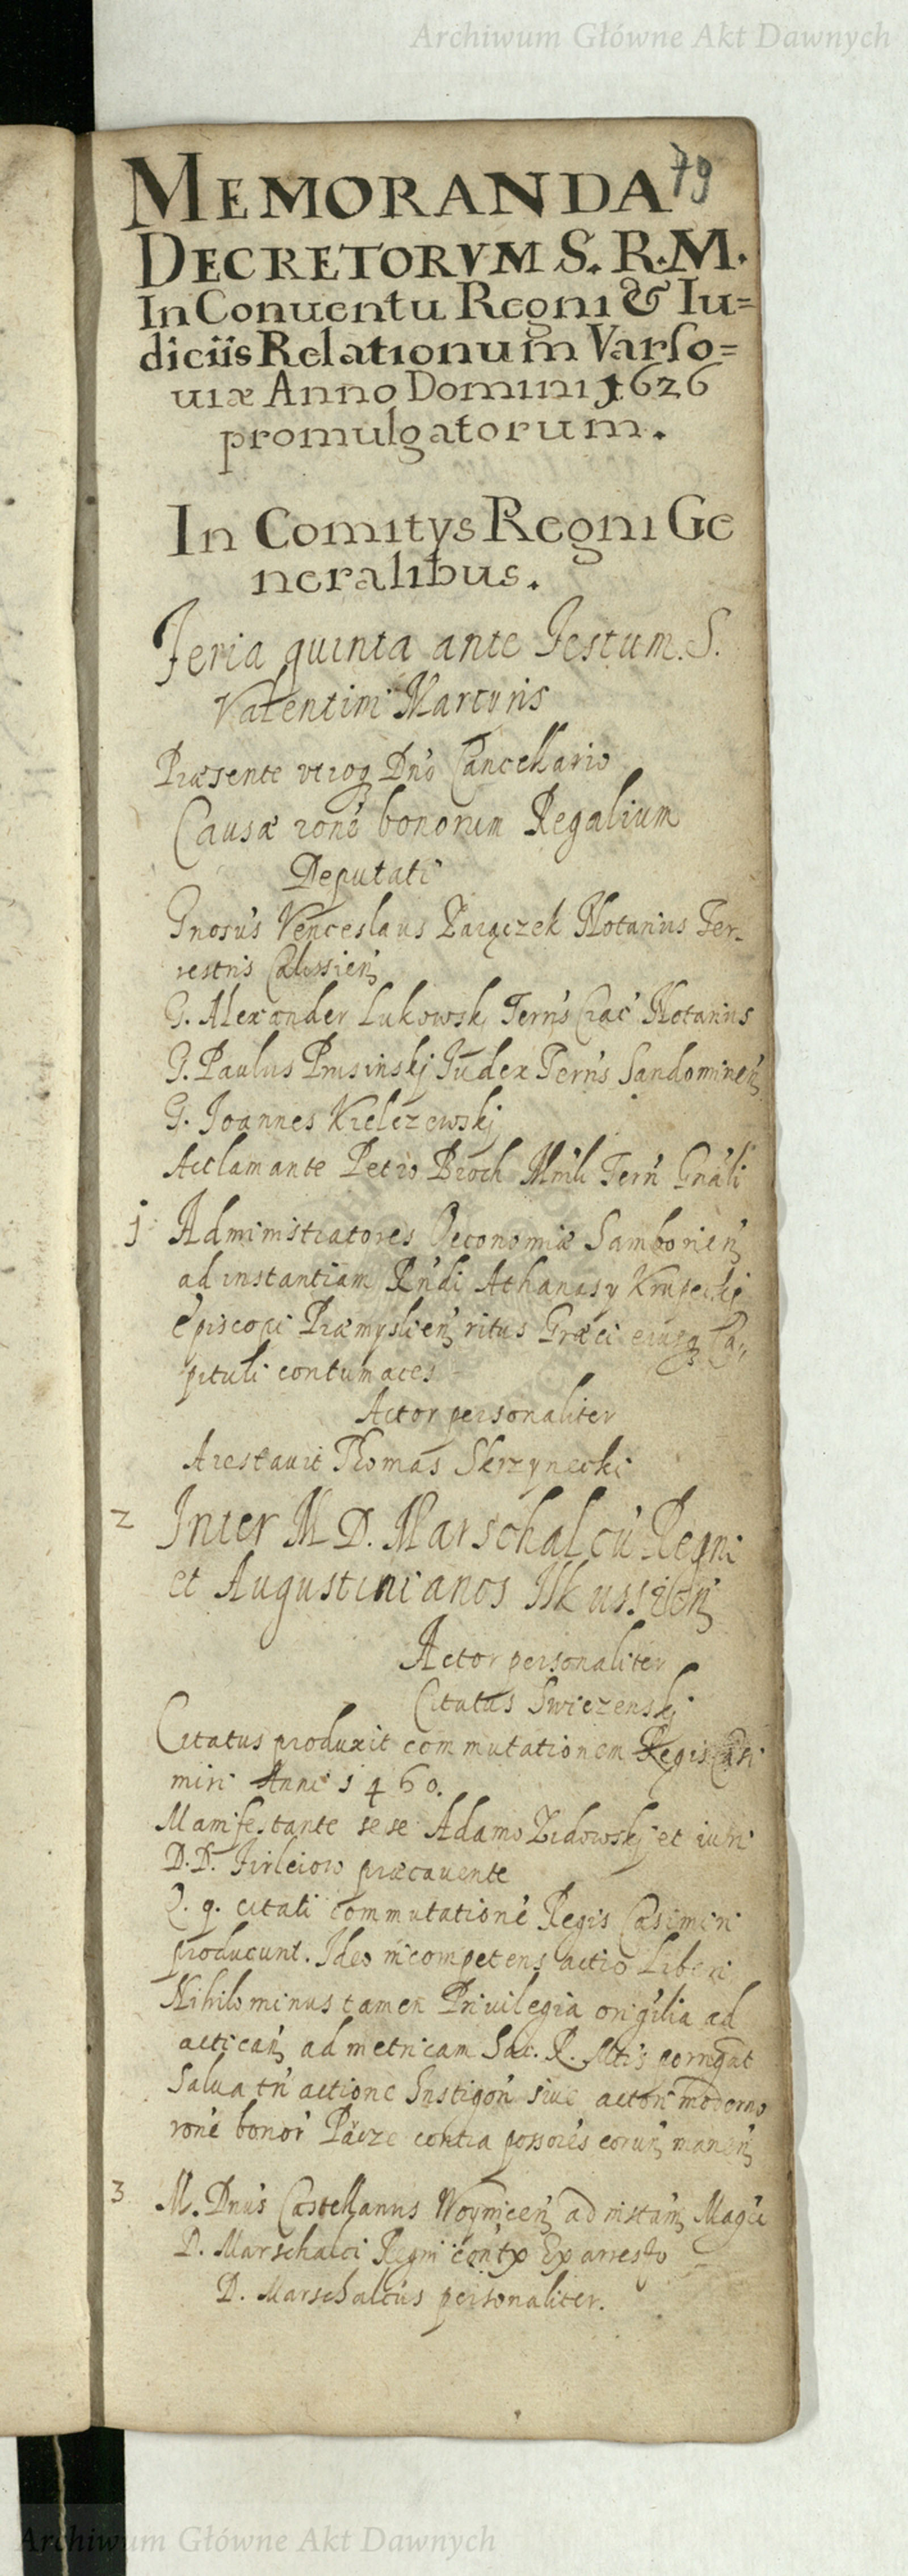 Archiwum Główne Akt Dawnych
79
MEMORANDA
DECRETORVM S. R. M.
In Conuentu Regni & Iu=
diciis Relationum Varſo=
uiæ Anno Domini 1626
promulgatorum.
In Comitys Regni Ge
neralibus.
Feria quinta ante Festum. S.
Valentini Martyris
Præsente utroq Dno Cancellario
Causæ rone bonorum Regalium
Deputati
Gnosus Venceslaus Zaiączek Notarius Ter-
restris Calissien
G. Alexander Lukowskj Terris Crac Notarius
G. Paulus Prusinskj Iudex Terris Sandomirien
G. Joannes Kielczewskj
Acclamante Petro Broch Mnli Terri Gnali
1 Administratores Oeconomiæ Samborien
ad instantiam Rndi Athanasy Krupeckj
Episcopi Præmyslien ritus Græci eiusq Ca,,
pituli contumaces
Actor personaliter
Arestauit Thomas Skrzynecki
2 Inter M D. Marschalcu Regni
et Augustinianos Ilkussien
Actor personaliter
Citatus Swiezenskj
Citatus produxit commutationem Regis Casi
miri Anni 1460.
Manifestante sese Adamo Zidowskj et iuri
D.D. Firleiow præcauente
Q. q. citati commutatione Regis Casimiri
producunt. Ideo incompetens actio Liberi
Nihilominus tamen Priuilegia origilia ad
actican ad metricam Sac. R. Mtis porrigat
Salua tn actione Instigori siue actori moderno
rone bonor contra possores eorun manen
3 M. Dnus Castellanus Woynicen ad instam Magci
D. Marschalci Regni contx Ex arresto
D. Marschalcus personaliter.
Archiwum Główne Akt Dawnych